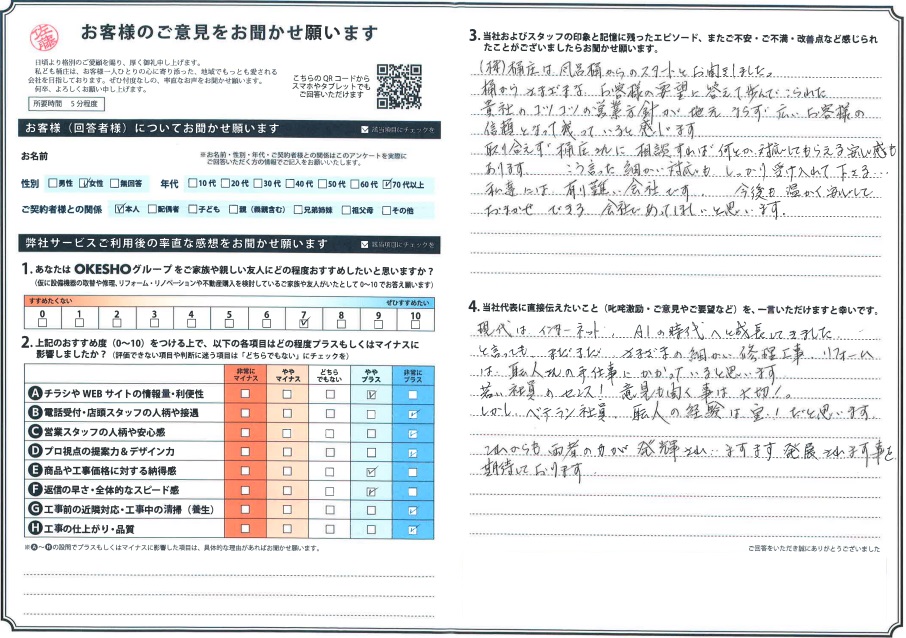 佐藤
お客様のご意見をお聞かせ願います
日頃より格別のご愛顧を賜り、厚く御礼申し上げます。
私ども桶庄は、お客様一人ひとりの心に寄り添った、地域でもっとも愛される
会社を目指しております。ぜひ忖度なしの、率直なお声をお聞かせ願います。
何卒、よろしくお願い申し上げます。
所要時間 5分程度
こちらのQRコードから
スマホやタブレットでも
ご回答いただけます
お客様（回答者様）についてお聞かせ願います
☑ 該当項目にチェックを
お名前
※お名前・性別・年代・ご契約者様との関係はこのアンケートを実際に
ご回答いただく方の情報でご記入をお願いいたします。
性別 □男性 ☑女性 □無回答 年代 □10代 □20代 □30代 □40代 □50代 □60代 ☑70代以上
ご契約者様との関係 ☑本人 □配偶者 □子ども □親（義親含む） □兄弟姉妹 □祖父母 □その他
弊社サービスご利用後の率直な感想をお聞かせ願います
☑ 該当項目にチェックを
1. あなたは OKESHOグループ をご家族や親しい友人にどの程度おすすめしたいと思いますか？
（仮に設備機器の取替や修理、リフォーム・リノベーションや不動産購入を検討しているご家族や友人がいたとして 0〜10でお答え願います）
すすめたくない ぜひすすめたい
0 1 2 3 4 5 6 7 8 9 10
□ □ □ □ □ □ □ ☑ □ □ □
2. 上記のおすすめ度（0〜10）をつける上で、以下の各項目はどの程度プラスもしくはマイナスに
影響しましたか？（評価できない項目や判断に迷う項目は「どちらでもない」にチェックを）
非常にマイナス ややマイナス どちらでもない ややプラス 非常にプラス
A チラシやWEBサイトの情報量・利便性 □ □ □ ☑ □
B 電話受付・店頭スタッフの人柄や接遇 □ □ □ □ ☑
C 営業スタッフの人柄や安心感 □ □ □ □ ☑
D プロ視点の提案力＆デザイン力 □ □ □ □ ☑
E 商品や工事価格に対する納得感 □ □ □ ☑ □
F 返信の早さ・全体的なスピード感 □ □ □ ☑ □
G 工事前の近隣対応・工事中の清掃（養生） □ □ □ □ ☑
H 工事の仕上がり・品質 □ □ □ □ ☑
※A〜Hの設問でプラスもしくはマイナスに影響した項目は、具体的な理由があればお聞かせ願います。
3. 当社およびスタッフの印象と記憶に残ったエピソード、またご不安・ご不満・改善点など感じられ
たことがございましたらお聞かせ願います。
(株)桶庄は風呂桶からのスタートとお聞きしました。
桶からさまざまな、お客様の要望に答えて歩んでこられた
貴社のコツコツの営業方針が 地元ならず広いお客様の
信頼となって残っていると感じます
取り合えず 桶庄さんに 相談すれば何とか対応してもらえる安心感も
あります こう言った細かい対応も しっかり受け入れて下さる…
私達には 有り難い会社です。 今後も温かく安心して
おまかせ できる 会社であってほしいと思います。
4. 当社代表に直接伝えたいこと（叱咤激励・ご意見やご要望など）を、一言いただけますと幸いです。
現代は インターネット、AIの時代へと成長してきました
と言っても まだまだ さまざまの細かい修理工事、リフォーム
は、職人さんの手仕事にかかっていると思います
若い社員のセンス！ 意見も聞く事は大切！
しかし、ベテラン社員、職人の経験は宝！だと思います
これからも 両者の力が 発揮され… ますます 発展されます事を
期待しております
ご回答をいただき誠にありがとうございました